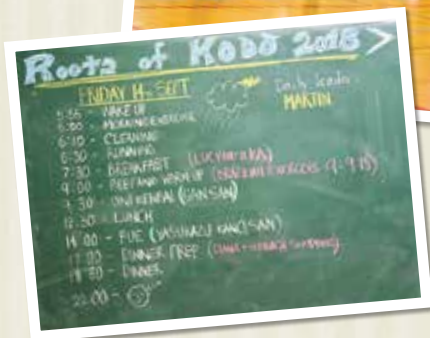 Roots of KODO 2018
FRIDAY 14 SEPT
Daily leader
MARTIN
WAKE UP
6:00 - MORNING EXERCISE
6:10 - CLEANING
6:30 - RUNNING
7:30 - BREAKFAST
9:00 - AND WARM UP
9:30 - ONI KENBAI (GAN SAN)
12:30 - LUNCH
14:00 - FUE (YASUKAZU KANO SAN)
DINNER PREP
DINNER
22:00 -